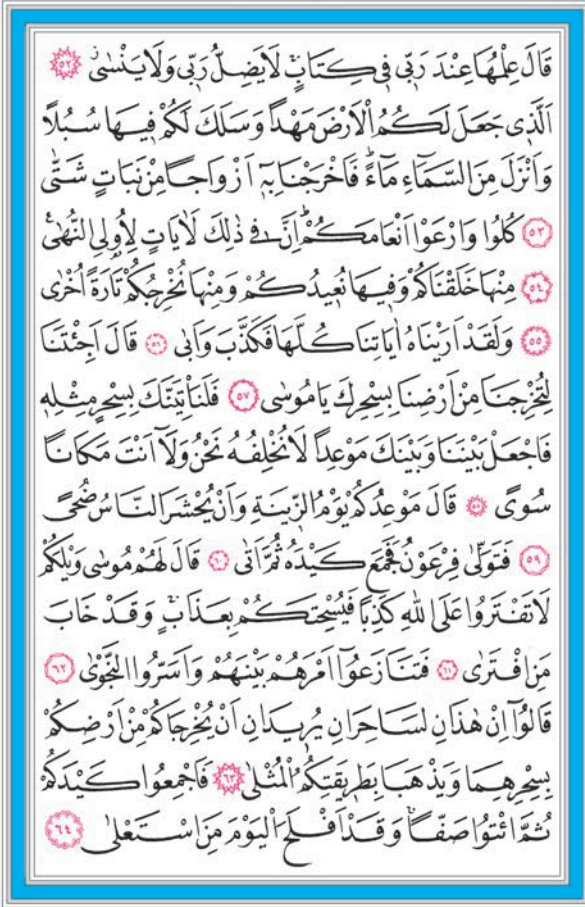 قَالَ عِلْمُهَا عِنْدَ رَبّ۪ي ف۪ي كِتَابٍۚ لَا يَضِلُّ رَبّ۪ي وَلَا يَنْسٰىۘ ﴿٥٢﴾
اَلَّذ۪ي جَعَلَ لَكُمُ الْاَرْضَ مَهْداً وَسَلَكَ لَكُمْ ف۪يهَا سُبُلاً
وَاَنْزَلَ مِنَ السَّمَٓاءِ مَٓاءًۜ فَاَخْرَجْنَا بِه۪ٓ اَزْوَاجاً مِنْ نَبَاتٍ شَتّٰى
﴿٥٣﴾ كُلُوا وَارْعَوْا اَنْعَامَكُمْۜ اِنَّ ف۪ي ذٰلِكَ لَاٰيَاتٍ لِاُو۬لِي النُّهٰى۟
﴿٥٤﴾ مِنْهَا خَلَقْنَاكُمْ وَف۪يهَا نُع۪يدُكُمْ وَمِنْهَا نُخْرِجُكُمْ تَارَةً اُخْرٰى
﴿٥٥﴾ وَلَقَدْ اَرَيْنَاهُ اٰيَاتِنَا كُلَّهَا فَكَذَّبَ وَاَبٰى ﴿٥٦﴾ قَالَ اَجِئْتَنَا
لِتُخْرِجَنَا مِنْ اَرْضِنَا بِسِحْرِكَ يَا مُوسٰى ﴿٥٧﴾ فَلَنَأْتِيَنَّكَ بِسِحْرٍ مِثْلِه۪
فَاجْعَلْ بَيْنَنَا وَبَيْنَكَ مَوْعِداً لَا نُخْلِفُهُ نَحْنُ وَلَٓا اَنْتَ مَكَاناً
سُوًى ﴿٥٨﴾ قَالَ مَوْعِدُكُمْ يَوْمُ الزّ۪ينَةِ وَاَنْ يُحْشَرَ النَّاسُ ضُحًى
﴿٥٩﴾ فَتَوَلّٰى فِرْعَوْنُ فَجَمَعَ كَيْدَهُ ثُمَّ اَتٰى ﴿٦٠﴾ قَالَ لَهُمْ مُوسٰى وَيْلَكُمْ
لَا تَفْتَرُوا عَلَى اللّٰهِ كَذِباً فَيُسْحِتَكُمْ بِعَذَابٍۚ وَقَدْ خَابَ
مَنِ افْتَرٰى ﴿٦١﴾ فَتَنَازَعُٓوا اَمْرَهُمْ بَيْنَهُمْ وَاَسَرُّوا النَّجْوٰى ﴿٦٢﴾
قَالُٓوا اِنْ هٰذَانِ لَسَاحِرَانِ يُر۪يدَانِ اَنْ يُخْرِجَاكُمْ مِنْ اَرْضِكُمْ
بِسِحْرِهِمَا وَيَذْهَبَا بِطَر۪يقَتِكُمُ الْمُثْلٰى ﴿٦٣﴾ فَاَجْمِعُوا كَيْدَكُمْ
ثُمَّ ائْتُوا صَفاًّۚ وَقَدْ اَفْلَحَ الْيَوْمَ مَنِ اسْتَعْلٰى ﴿٦٤﴾